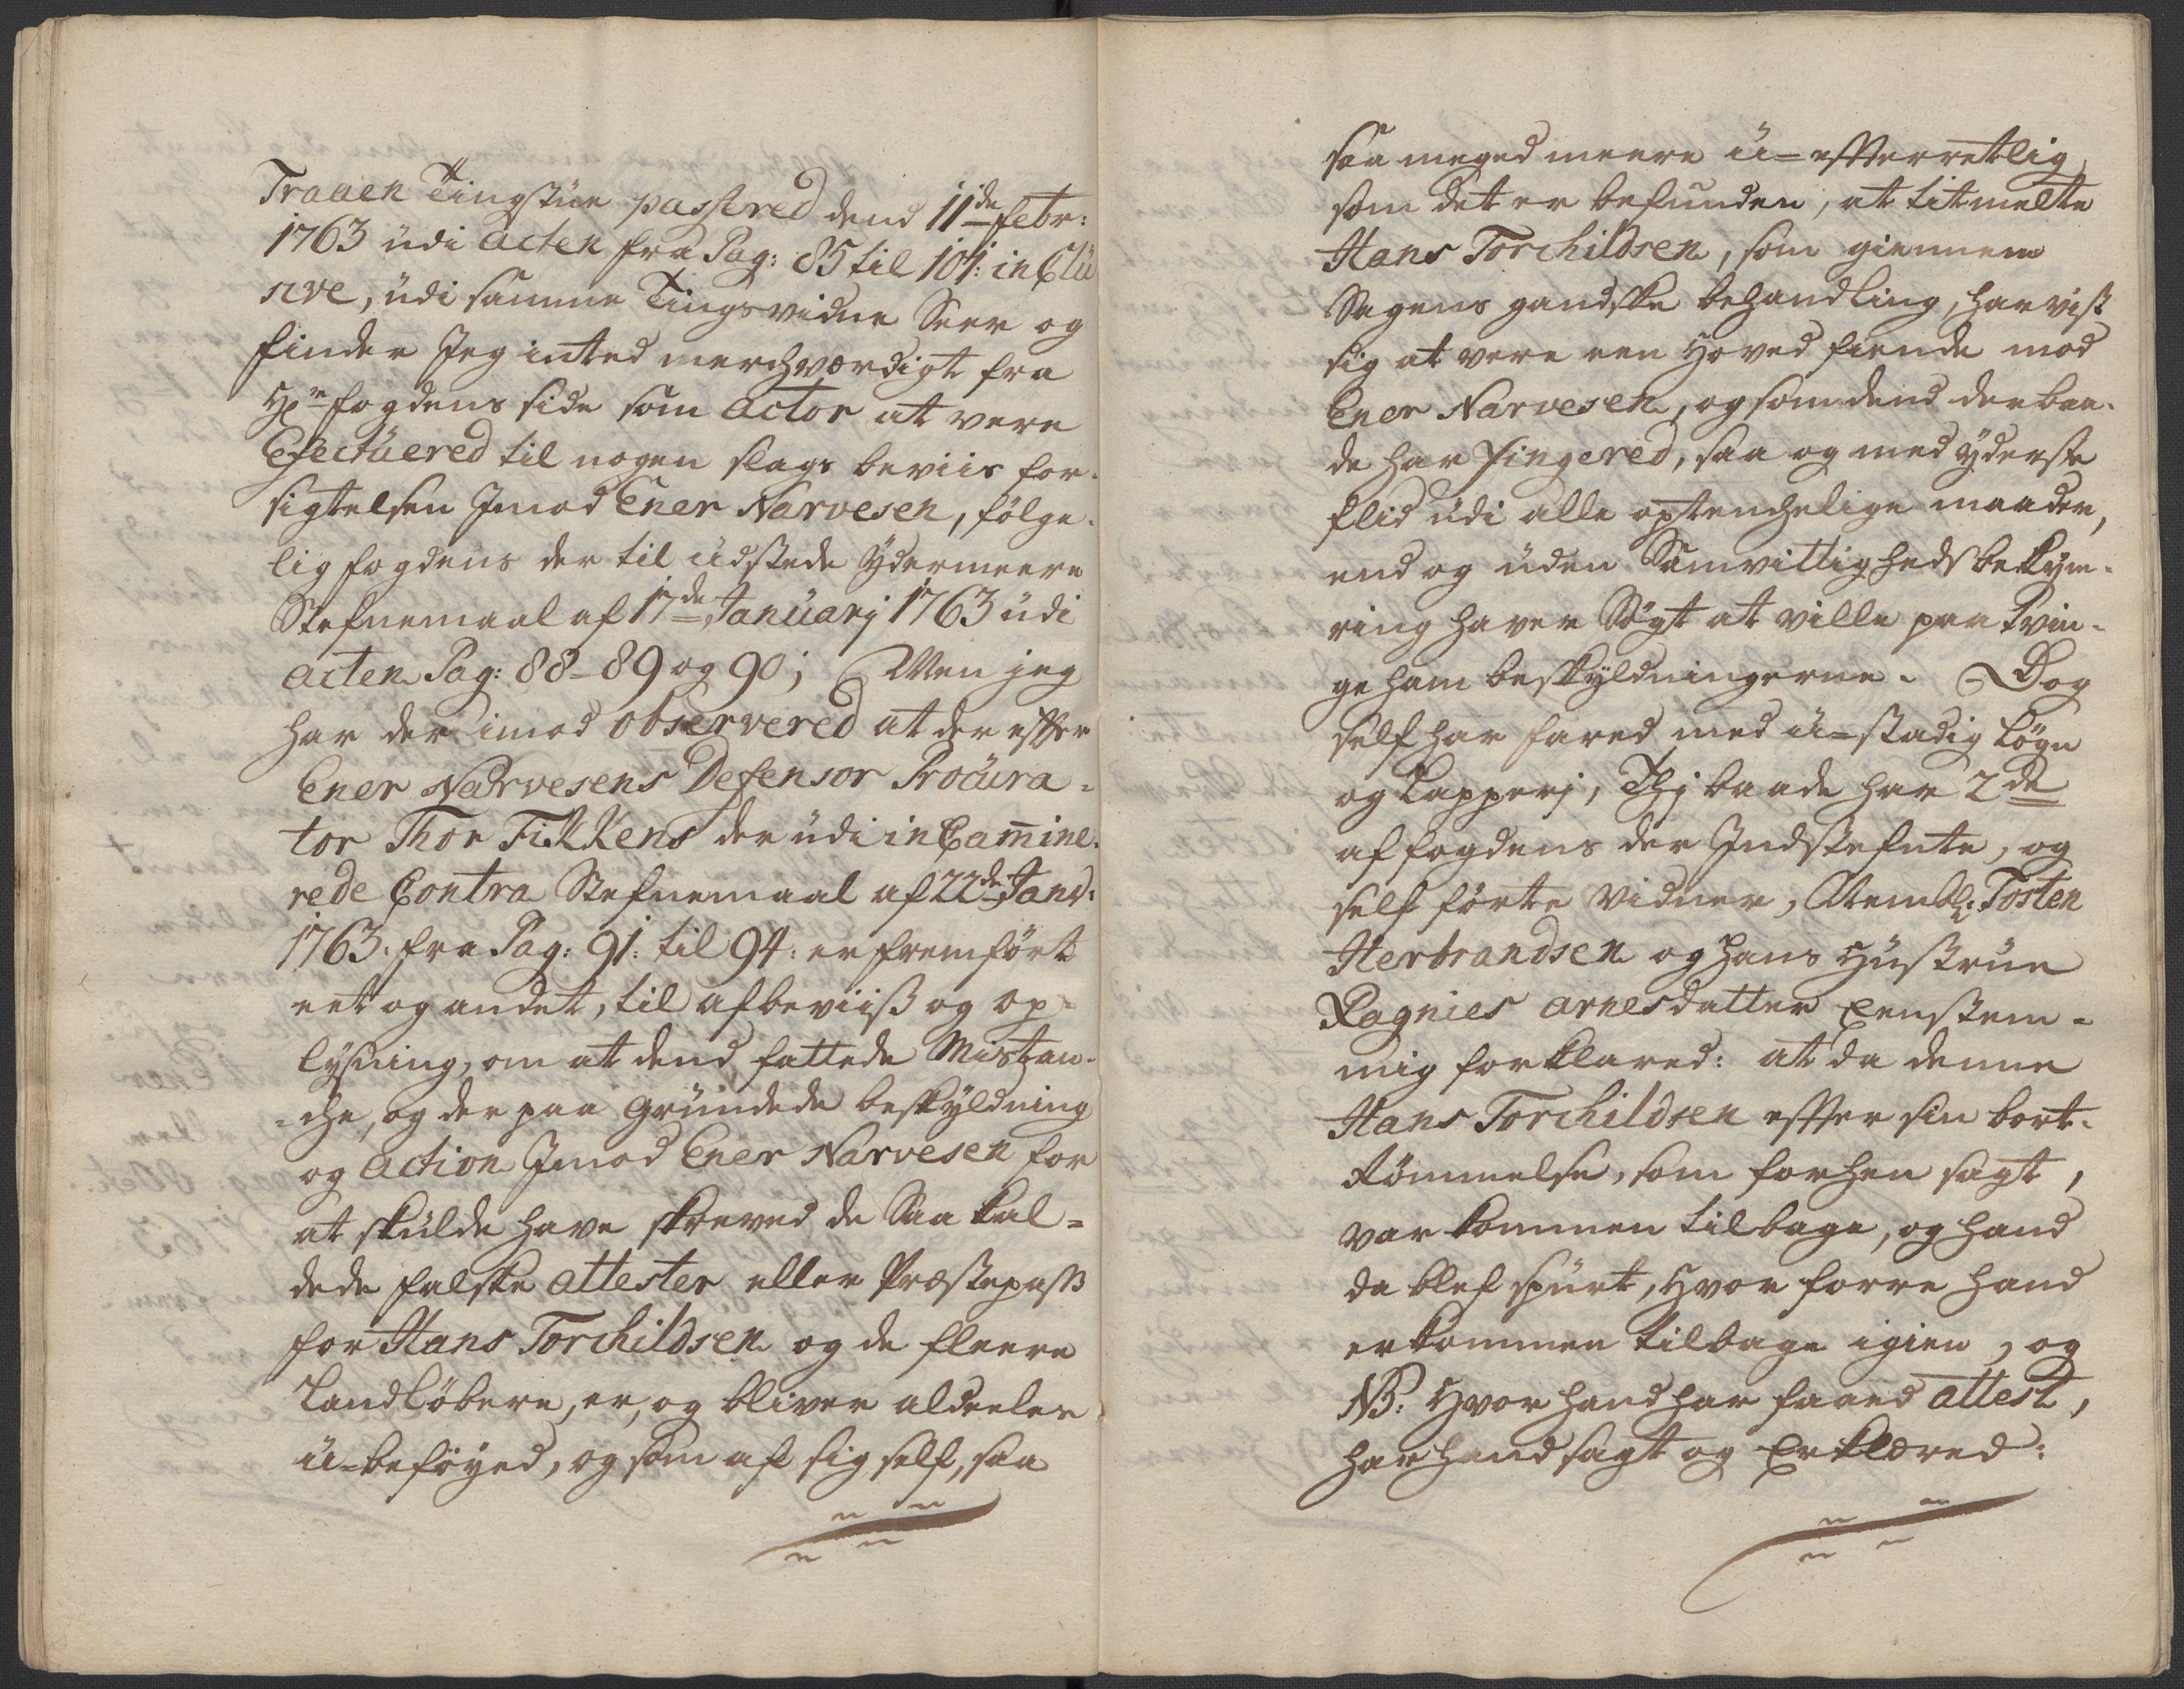 Traaen Tingstue passered dend 11de Febr:
1763 udi Acten fra Pag: 85 til 101: inclu
sive, udi samme Tingsvidne Seer og
finder Jeg inted merchværdigt fra
Hr. fogdens side som Actor at være
Efectuered til nogen slags beviis for-
sigtelsen Imod Ener Narvesen, følge-
lig fogdens der til udstede ydermeere
Stefnemaal af 17de Januarj 1763 udi
Acten Pag: 88-89 og 90; Men jeg
har der imod observered at der efter
Ener Narvesens Defensor Procura-
tor Thor Fikkens der udi in Camine-
rede Contra Stefnemaal af 22de Janv:
1763. fra Pag: 91: til 94: er fremført
eet og andet, til afbeviiß og op-
lysning, om at dend fattede Mistan-
-che, og der paa grundede beskyldning
og Action Imod Ener Narvesen for
at skulde have skreved de Saa kal-
dede falske Attester eller Præstepass
for Hans Torchildsen og de fleere
Landløbere, er, og bliver aldeeles
u-beføyed, og som af sig self, saa
saa meged meere u-efterretlig
som det er befunden, at titmelte
Hans Torchildsen, som giennem
Sagens gandske behandling, har vist
sig at være een Hoved fiende mod
Ener Narvesen, og som dend der baa-
de har Fingered, saa og med yderste
flid udi alle optenchelige maader,
end og uden Samvittighedsbekym-
ring haver Søgt at ville paa Tvin-
ge ham beskyldningerne. Dog
self har fared med u-stadig Løgn
og Lapperj, Thj baade har 2de
af fogdens der Indstefnte, og
self førte Vidner, Nembl: Tosten
Herbrandsen og hans Hustrue
Ragnies Arnesdatter Eenstem-
mig forklared: at da denne
Hans Torchildsen efter sin bort-
Rømmelse, som forhen sagt,
var kommen tilbage, og hand
da blef spurt, Hvor forre hand
er kommen tilbage igien, og
NB: Hvor hand har faaed Attest,
har hand sagt og Erklæred: